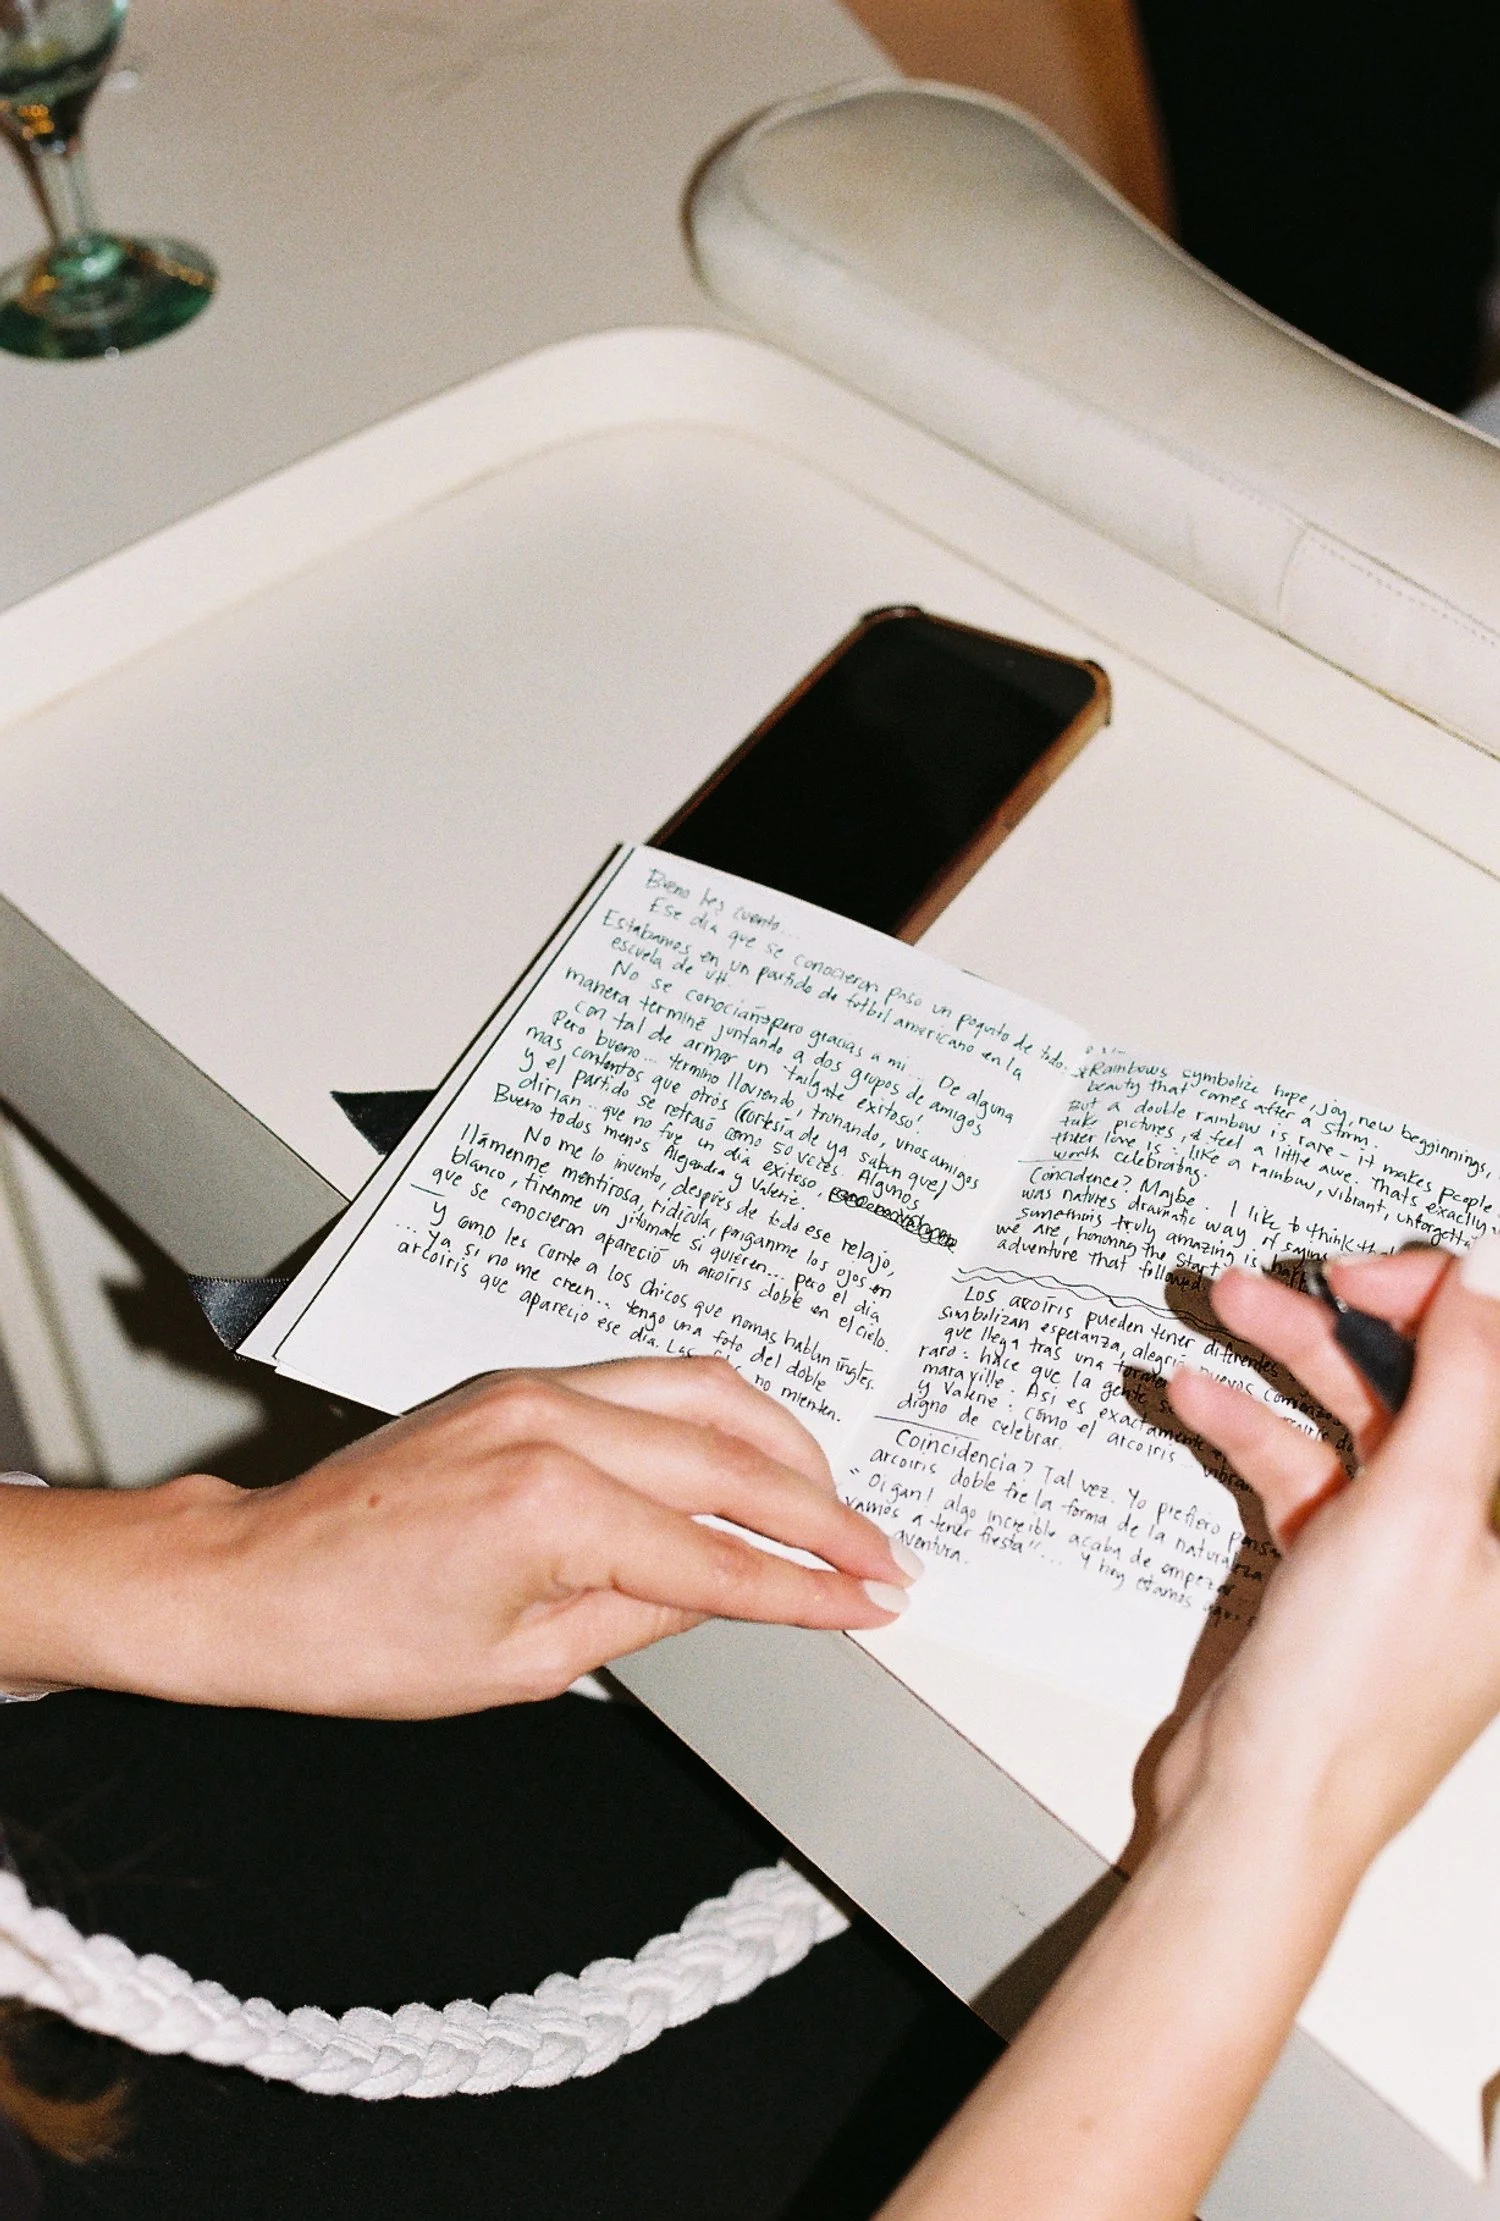 Bueno les cuento...
Ese día que se conocieron paso un poquito de todo.
Estabamos en un partido de futbol americano en la
escuela de
No se conocían pero gracias a mi... De alguna
manera terminé juntando a dos grupos de amigos
con tal de armar un tailgate exitoso!
Pero bueno... termino lloviendo, tronando, unos amigos
mas contentos que otros (cortesía de ya saben que)
y el partido se retrasó como 50 veces. Algunos
dirían.. que no fue un día exitoso,
Bueno todos menos Alejandra y Valerie.
No me lo invento, después de todo ese relajo,
llámenme mentirosa, ridícula, pónganme los ojos en
blanco, tirenme un jitomate si quieren... pero el día
que se conocieron apareció un arcoíris doble en el cielo.
Y como les corte a los chicos que nomas hablan inglés.
... Ya si no me creen.. tengo una foto del doble
arcoíris que apareció ese día. Las no mienten.
Rainbows symbolize hope, joy, new begginnings,
beauty that comes after a storm.
But a double rainbow is rare - it makes people
take pictures, & feel a little awe. Thats exactly
their love is: like a rainbow, vibrant, unforgetta
worth celebrating.
Coincidence? Maybe. I like to think th
was natures dramatic way of saying
something truly amazing is
we are, honoring the start
adventure that followed
Los arcoíris pueden tener diferentes
simbolizan esperanza, alegrí nuevos comienzos
que llega tras una tormen
raro: hace que la gente
maraville. Asi es exactamente
y Valerie: como el arcoiris... vibran
digno de celebrar.
Coincidencia? Tal vez. Yo prefiero pens
arcoiris doble fue la forma de la naturaleza
"Oigan! algo increible acaba de empezar
vamos a tener fiesta"... Y hoy estamos
aventura.